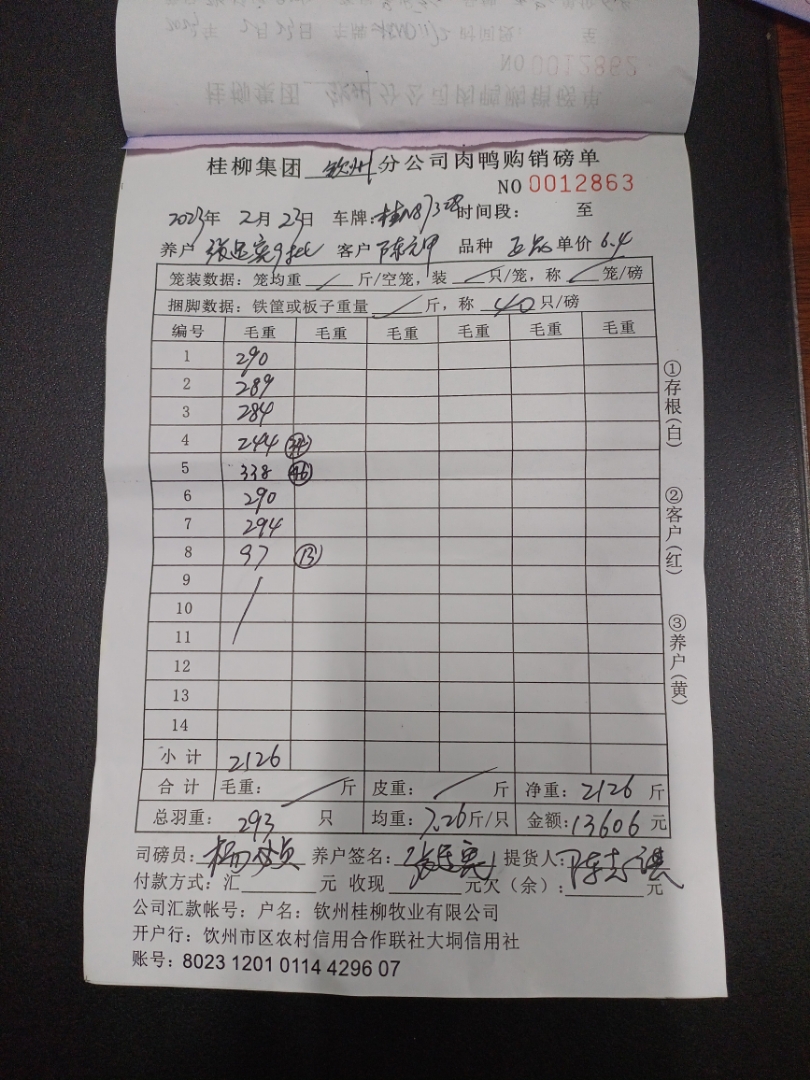 桂柳集团 钦州 分公司肉鸭购销磅单
NO 0012863
2023年 2月23日 车牌:桂N87328 时间段: 至
养户 客户 陈元甲 品种 正品 单价 6.4
笼装数据:笼均重 / 斤/空笼,装 / 只/笼,称 / 笼/磅
捆脚数据:铁筐或板子重量 / 斤,称 40 只/磅
编号 毛重 毛重 毛重 毛重 毛重 毛重
1 290
2 289
3 284
4 244 34
5 338 46
6 290
7 294
8 97 13
9 /
10
11
12
13
14
小计 2126
合计 毛重: / 斤 皮重: / 斤 净重:2126 斤
总羽重: 293 只 均重:7.26斤/只 金额:13606 元
司磅员: 养户签名: 提货人:
付款方式:汇 元 收现 元欠(余): 元
公司汇款帐号:户名:钦州桂柳牧业有限公司
开户行:饮州市区农村信用合作联社大垌信用社
账号:8023 1201 0114 4296 07
①存根(白)
②客户(红)
③养户(黄)